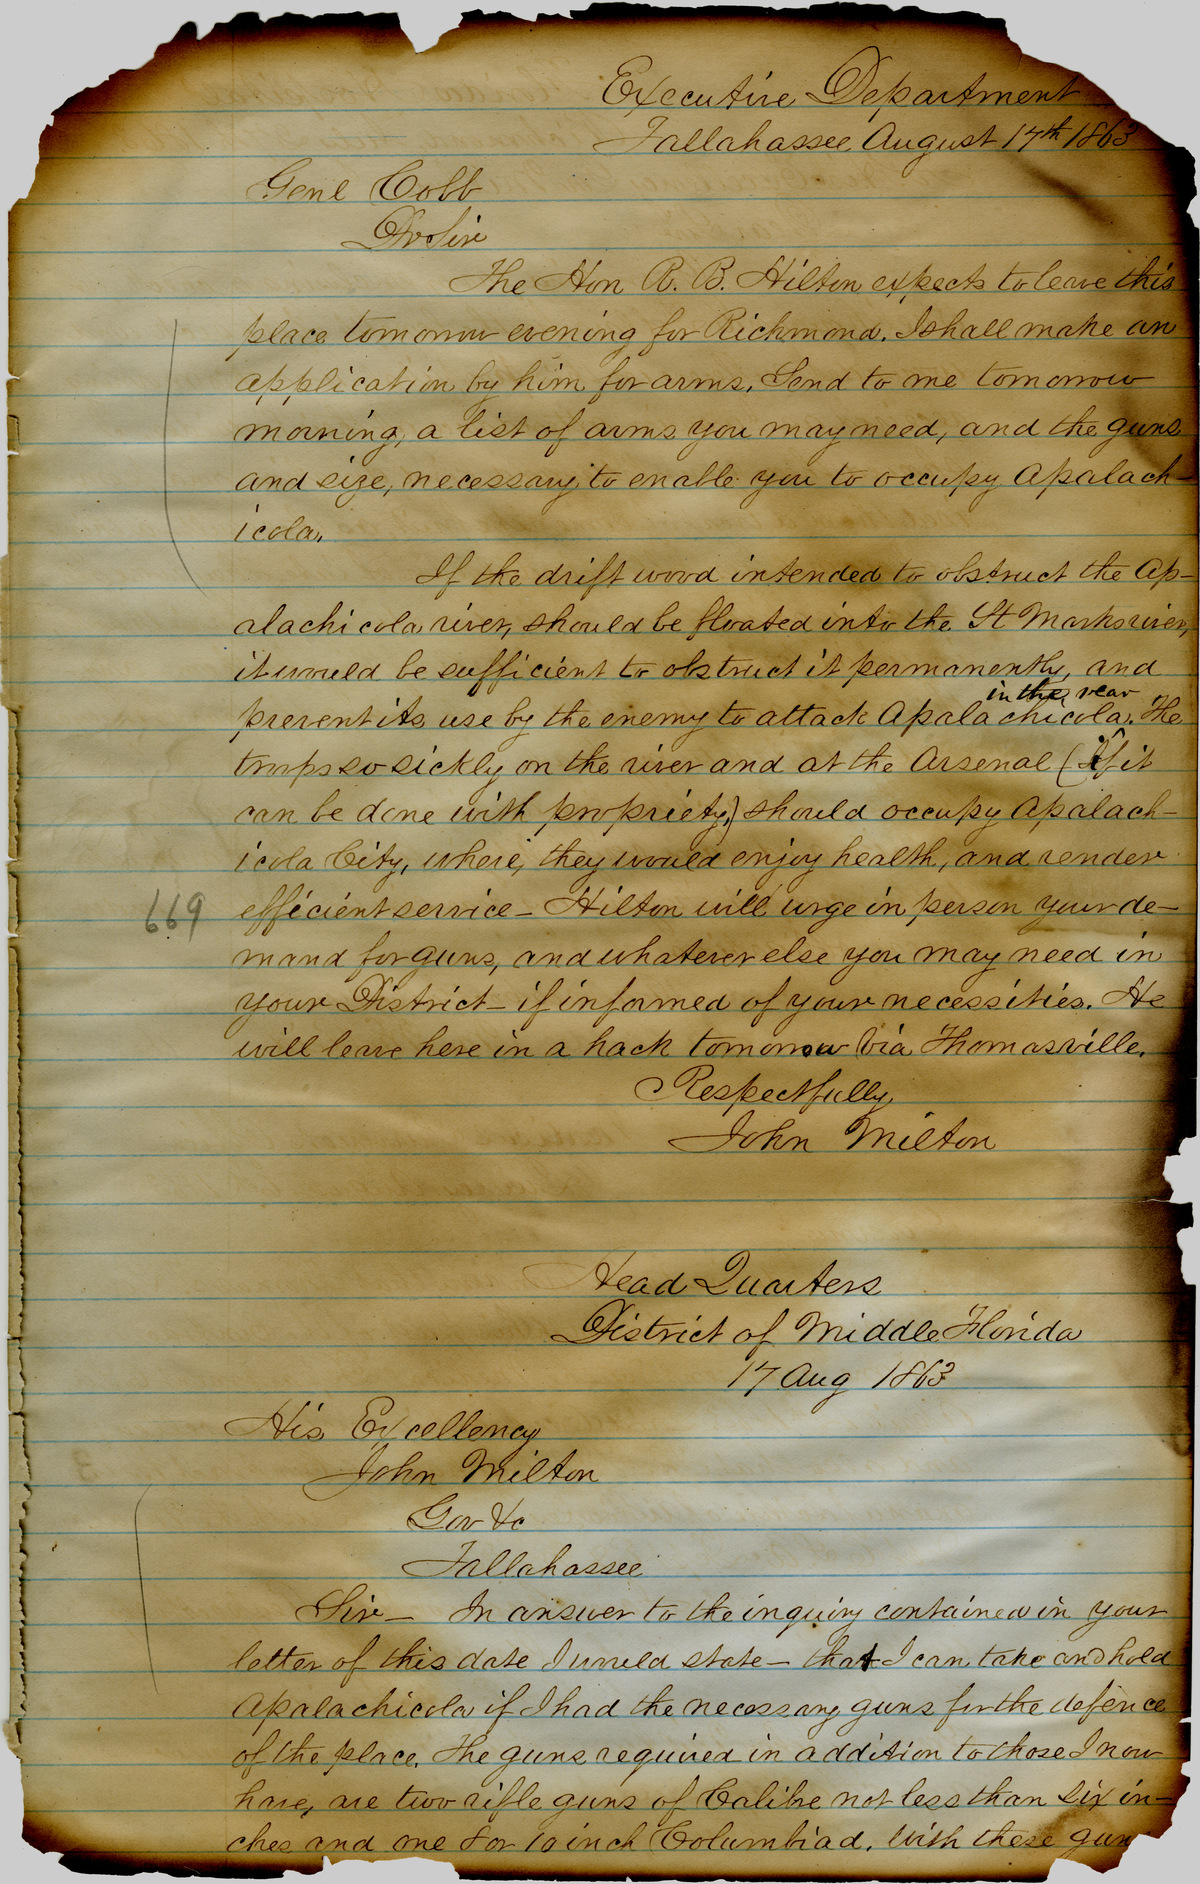 Executive Department
Tallahassee August 17th 1863
Genl Cobb
Dr Sir
The Hon R. B. Hilton expects to leave this
place tomorrow evening for Richmond. I shall make an
application by him for arms. Send to me tomorrow
morning, a list of arms you may need, and the guns
and size, necessary to enable you to occupy Apalach-
icola.
If the drift wood intended to obstruct the Ap-
alachicola river, should be floated into the St Marks river,
it would be sufficient to obstruct it permanently, and
in the rear
prevent its use by the enemy to attack Apalachicola. The
troops so sickly on the river and at the Arsenal (if it
can be done with propriety,) should occupy Apalach-
icola City, where, they would enjoy health, and render
669
efficient service - Hilton will urge in person your de-
mand for guns, and whatever else you may need in
your District - if informed of your necessities. He
will leave here in a hack tomorrow via Thomasville.
Respectfully
John Milton
Head Quarters
District of Middle Florida
17 Aug 1863
His Excellency
John Milton
Gov &c
Tallahassee
Sir - In answer to the inquiry contained in your
letter of this date I would state - that I can take and hold
Apalachicola if I had the necessary guns for the defence
of the place. The guns required in addition to those I now
have, are two rifle guns of Calibre not less than six in-
ches and one 8 or 10 inch Columbiad. With these guns